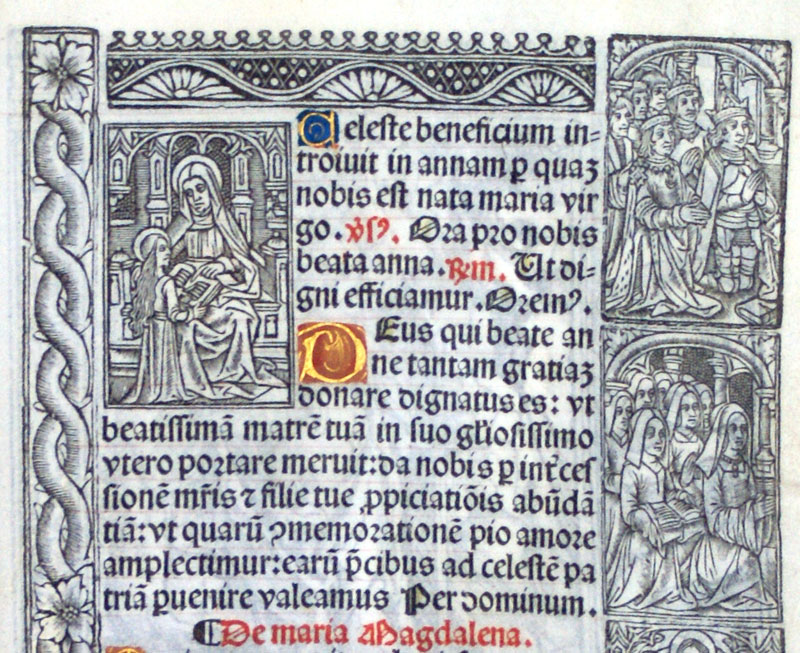 Celeste beneficium in=
troiuit in annam ꝑ quaꝫ
nobis est nata maria vir
go. v̕sꝰ. Ora pro nobis
beata anna. R̕m. Ut di=
gni efficiamur. Oremꝰ.
DEus qui beate an
ne tantam gratiaꝫ
donare dignatus es: vt
beatissimā matrē tuā in suo gl̕iosissimo
vtero portare meruit: da nobis ꝑ int̕ces
sionē mr̄is ⁊ filie tue ꝓpiciatiōis abūdā
tiā: vt quarū ꝯmemorationē pio amore
amplectimur: earū p̄cibus ad celestē pa
triā ꝑuenire valeamus Per dominum.
¶De maria Magdalena.